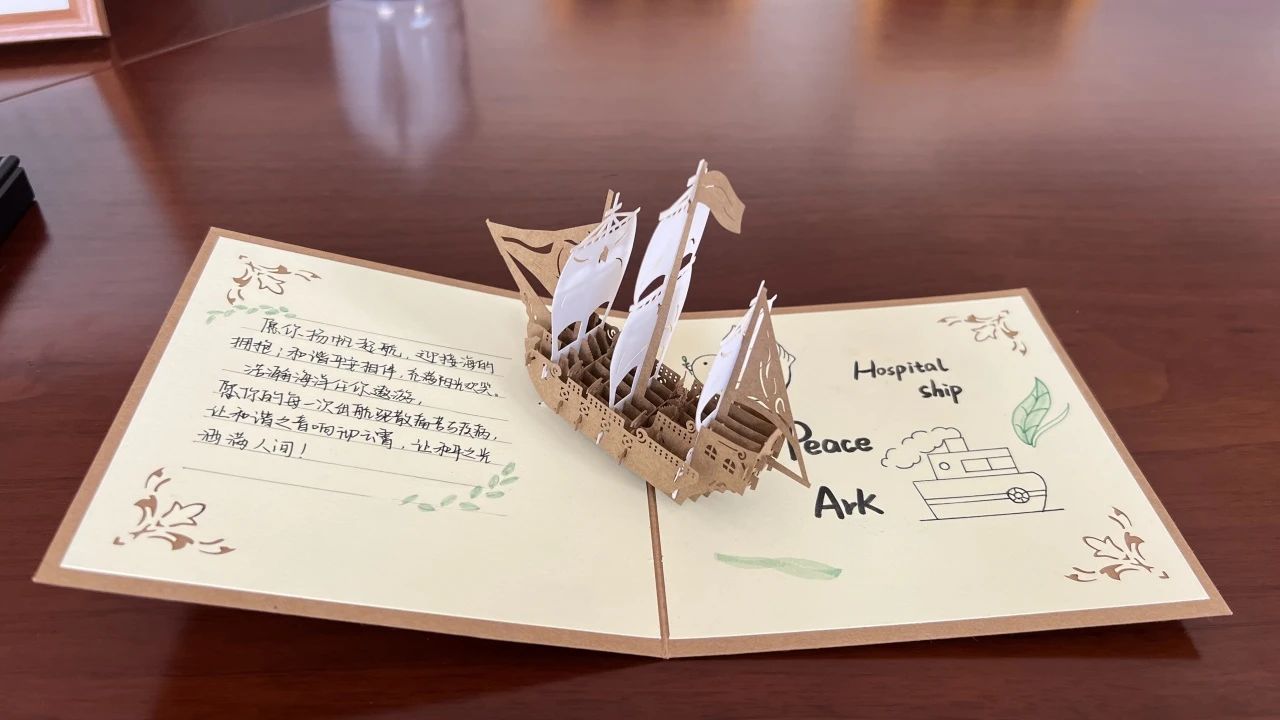 愿你扬帆起航，迎接海的
拥抱；和谐平安相伴，充满阳光欢笑。
浩瀚海洋任你遨游，
愿你的每一次出航驱散病患与疾病，
让和谐之音响神云霄，让和平之光
洒满人间！
Hospital
ship
Peace
Ark